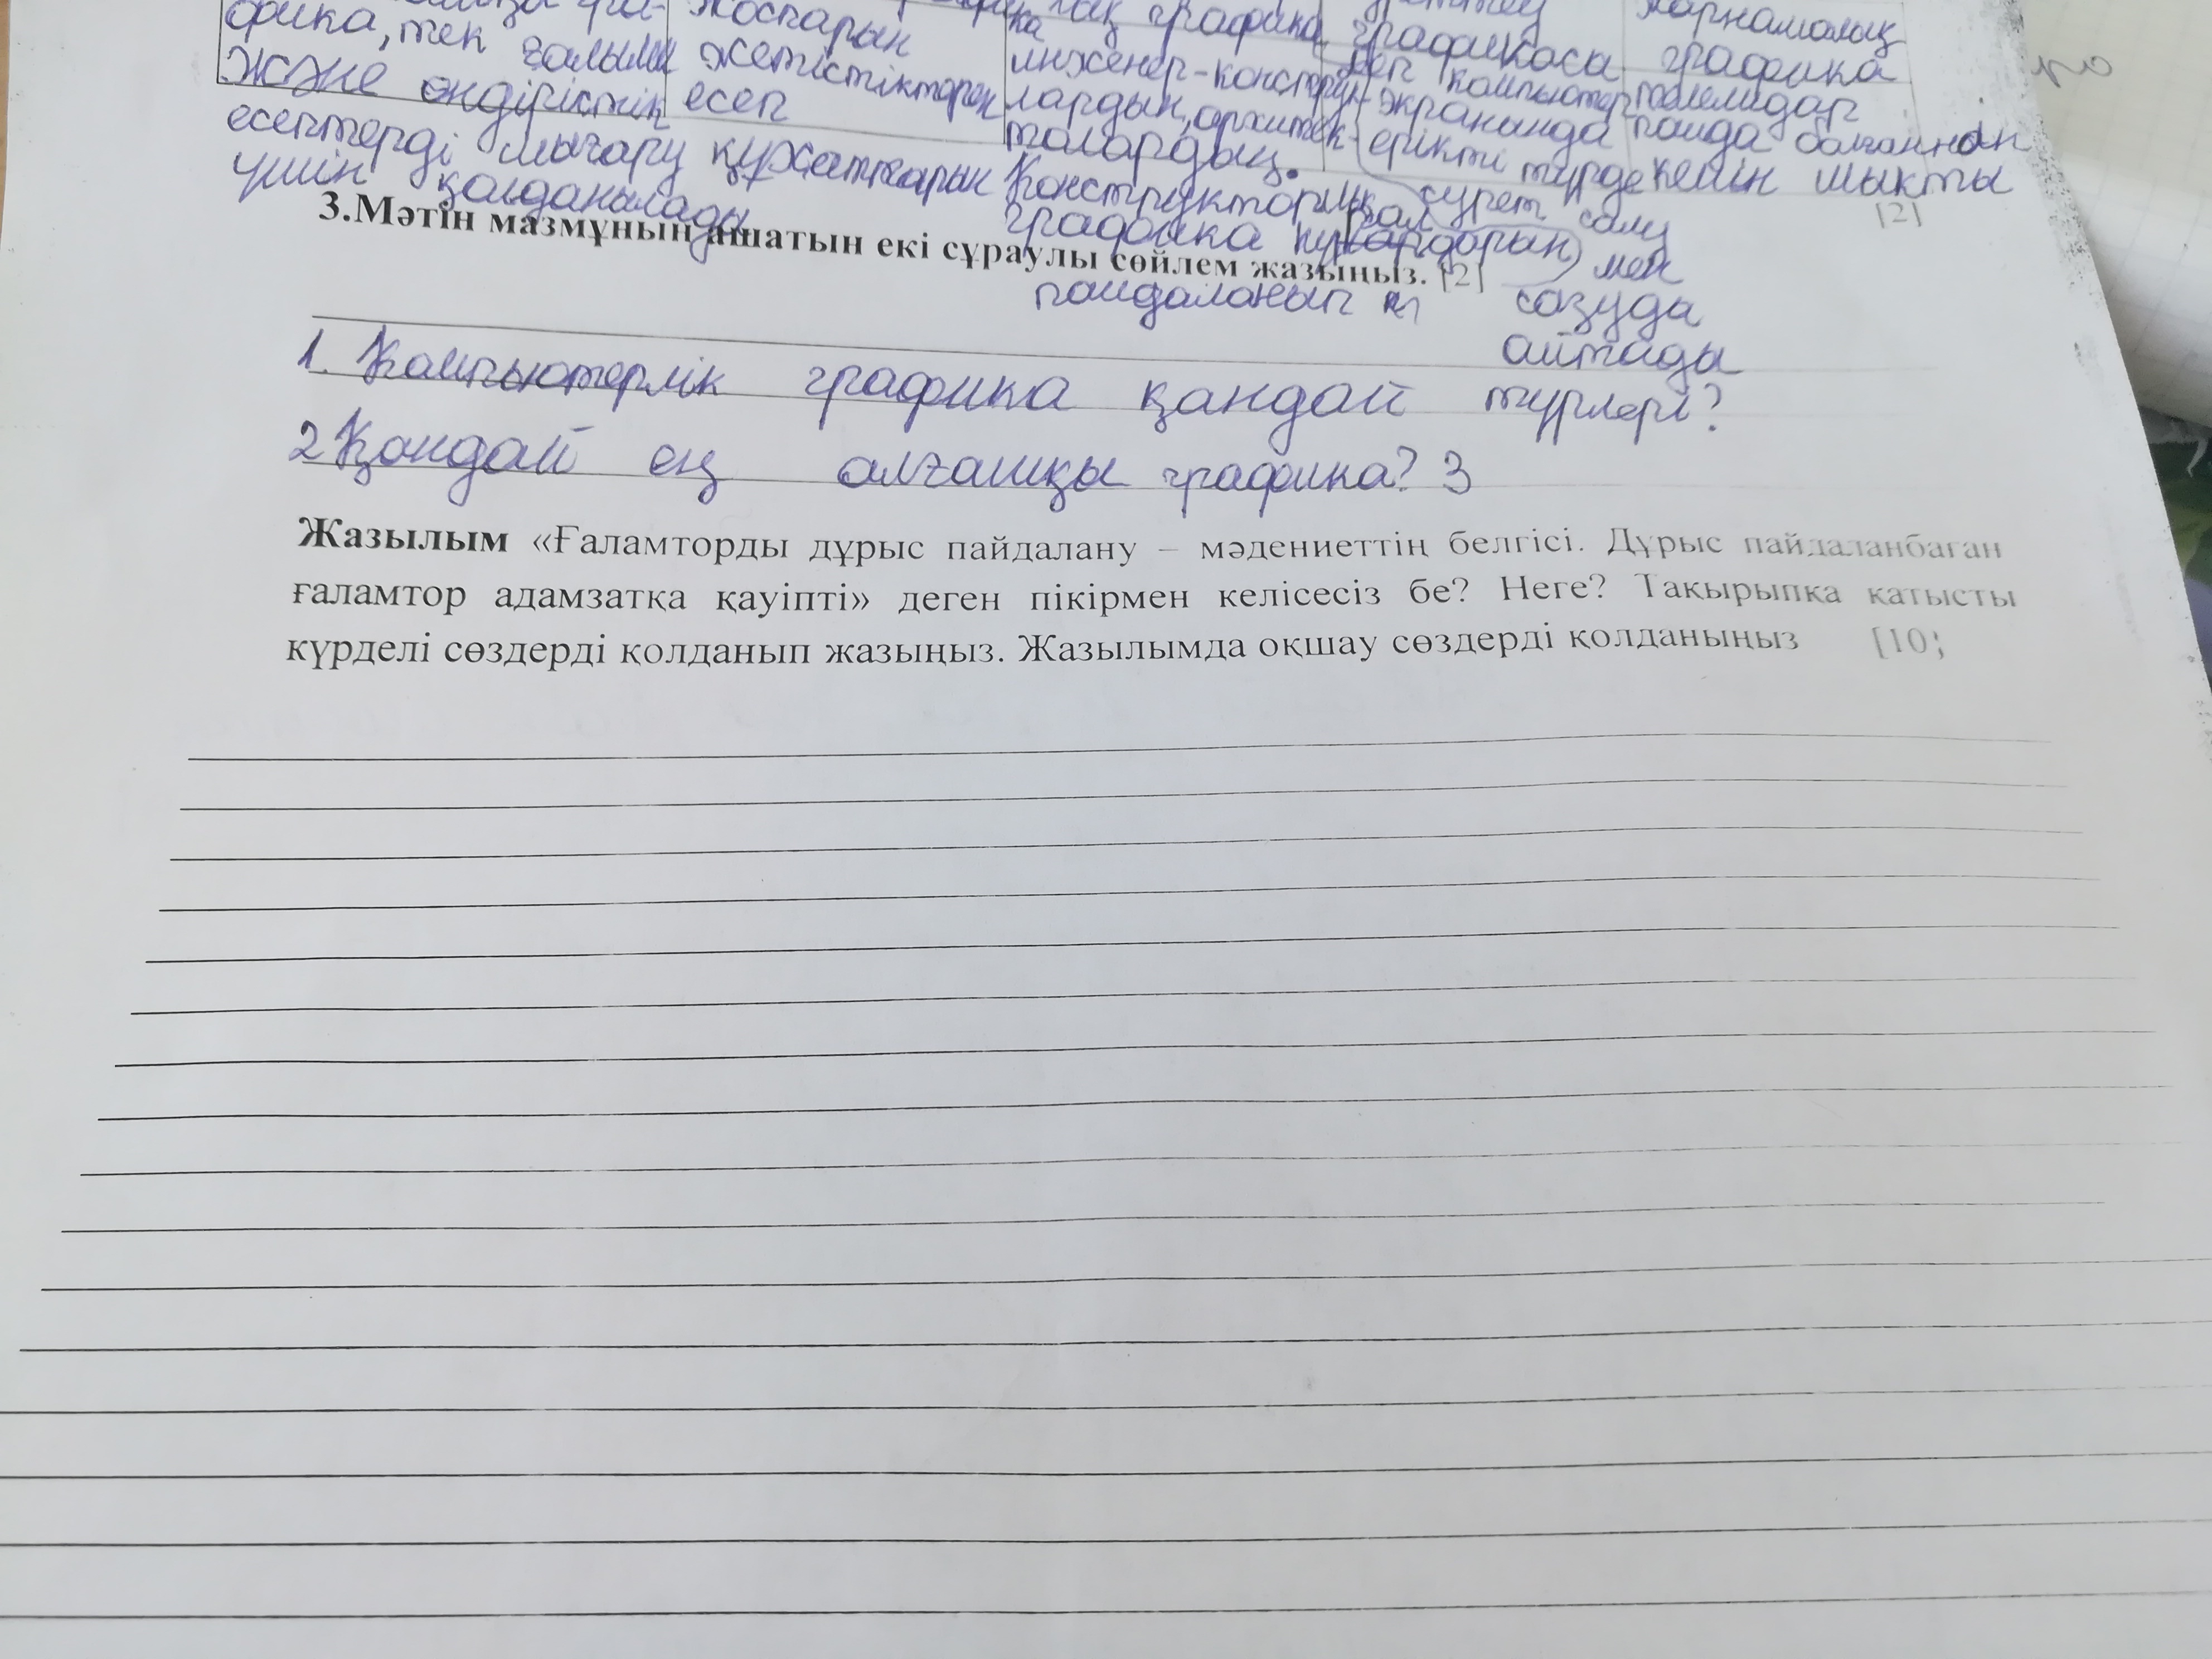 фика, тек ғалыми жоспарын лық графика графикаса жарнамалық
және өндірістік жетістіктерен есеп инженер-конструк- деп компьютер графика
есептерді шығару құжаттарын лардың, архитек- экрананда телемидар
үшін қолданылады талардың. ерікті түрде пайда болғаннан
Конструкторлық сурет салу кейін шықты
графика мен [2]
3.Мәтін мазмұнын ашатын екі сұраулы сөйлем жазыңыз. [2]
пайдаланып созуда
айтады
1. Компьютерлік графика қандай түрлері?
2 Қандай ең алғашқы графика? 3
Жазылым «Ғаламторды дұрыс пайдалану – мәдениеттің белгісі. Дұрыс пайдаланбаған
ғаламтор адамзатқа қауіпті» деген пікірмен келісесіз бе? Неге? Тақырыпқа қатысты
күрделі сөздерді қолданып жазыңыз. Жазылымда оқшау сөздерді қолданыңыз [10]